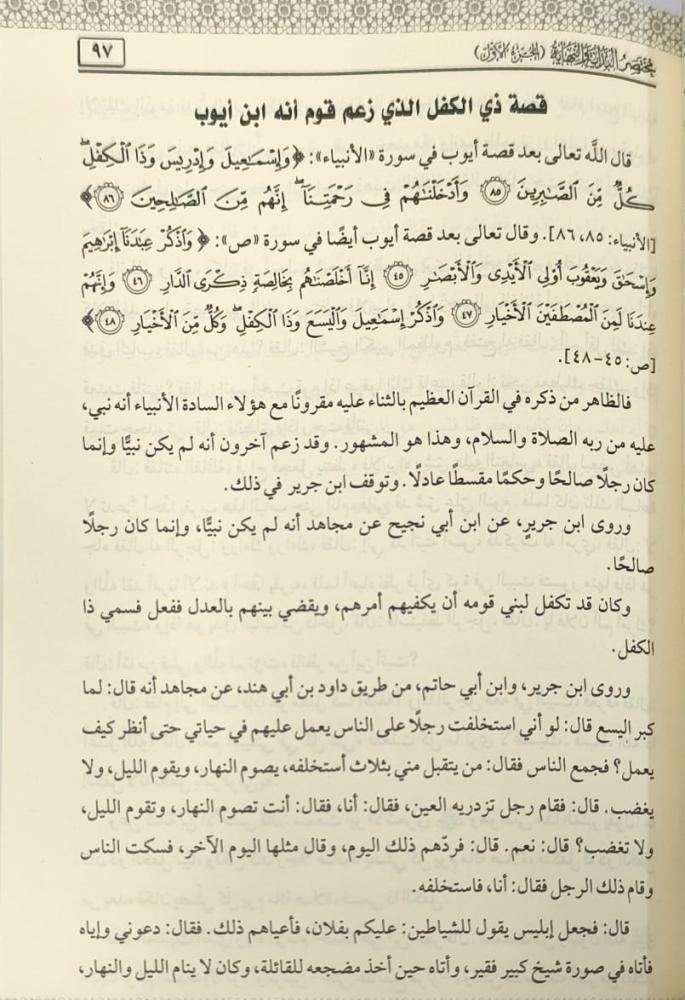 مختصر البداية والنهاية (الجزء الأول) ٩٧
قصة ذي الكفل الذي زعم قوم أنه ابن أيوب
قال اللَّه تعالى بعد قصة أيوب في سورة «الأنبياء»: ﴿وَإِسْمَٰعِيلَ وَإِدْرِيسَ وَذَا ٱلْكِفْلِۖ
كُلٌّ مِّنَ ٱلصَّٰبِرِينَ ۝٨٥ وَأَدْخَلْنَٰهُمْ فِى رَحْمَتِنَآۖ إِنَّهُم مِّنَ ٱلصَّٰلِحِينَ ۝٨٦﴾
[الأنبياء: ٨٥، ٨٦]. وقال تعالى بعد قصة أيوب أيضًا في سورة «ص»: ﴿وَٱذْكُرْ عِبَٰدَنَآ إِبْرَٰهِيمَ
وَإِسْحَٰقَ وَيَعْقُوبَ أُو۟لِى ٱلْأَيْدِى وَٱلْأَبْصَٰرِ ۝٤٥ إِنَّآ أَخْلَصْنَٰهُم بِخَالِصَةٍ ذِكْرَى ٱلدَّارِ ۝٤٦ وَإِنَّهُمْ
عِندَنَا لَمِنَ ٱلْمُصْطَفَيْنَ ٱلْأَخْيَارِ ۝٤٧ وَٱذْكُرْ إِسْمَٰعِيلَ وَٱلْيَسَعَ وَذَا ٱلْكِفْلِۖ وَكُلٌّ مِّنَ ٱلْأَخْيَارِ ۝٤٨﴾
[ص: ٤٥-٤٨].
فالظاهر من ذكره في القرآن العظيم بالثناء عليه مقرونًا مع هؤلاء السادة الأنبياء أنه نبي،
عليه من ربه الصلاة والسلام، وهذا هو المشهور. وقد زعم آخرون أنه لم يكن نبيًّا وإنما
كان رجلًا صالحًا وحكمًا مقسطًا عادلًا. وتوقف ابن جرير في ذلك.
وروى ابن جريرٍ، عن ابن أبي نجيح عن مجاهد أنه لم يكن نبيًّا، وإنما كان رجلًا
صالحًا.
وكان قد تكفل لبني قومه أن يكفيهم أمرهم، ويقضي بينهم بالعدل ففعل فسمي ذا
الكفل.
وروى ابن جرير، وابن أبي حاتم، من طريق داود بن أبي هند، عن مجاهد أنه قال: لما
كبر اليسع قال: لو أني استخلفت رجلًا على الناس يعمل عليهم في حياتي حتى أنظر كيف
يعمل؟ فجمع الناس فقال: من يتقبل مني بثلاث أستخلفه، يصوم النهار، ويقوم الليل، ولا
يغضب. قال: فقام رجل تزدريه العين، فقال: أنا، فقال: أنت تصوم النهار، وتقوم الليل،
ولا تغضب؟ قال: نعم. قال: فردّهم ذلك اليوم، وقال مثلها اليوم الآخر، فسكت الناس
وقام ذلك الرجل فقال: أنا، فاستخلفه.
قال: فجعل إبليس يقول للشياطين: عليكم بفلان، فأعياهم ذلك. فقال: دعوني وإياه
فأتاه في صورة شيخ كبير فقير، وأتاه حين أخذ مضجعه للقائلة، وكان لا ينام الليل والنهار،